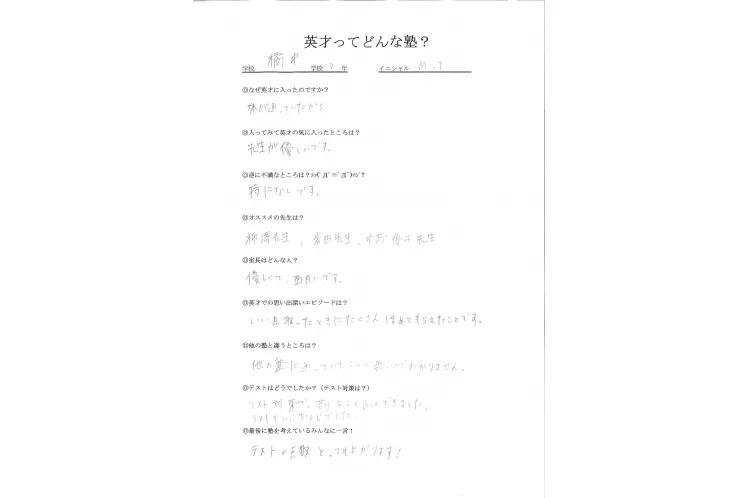 英才ってどんな塾？
学校 橘中 学校 2 年 イニシャル M.T
◎なぜ英才に入ったのですか？
姉が通っていたから
◎入ってみて英才の気に入ったところは？
先生が優しいです。
◎逆に不満なところは？
特になしです。
◎オススメの先生は？
柳澤先生，先生，先生
◎室長はどんな人？
優しくて、面白いです。
◎英才での思い出深いエピソードは？
いい点取ったときにたくさんほめてもらえたことです。
◎他の塾と違うところは？
他の塾に通っていたことが無いのでわかりません。
◎テストはどうでしたか？（テスト対策は？）
テスト対策で、けっこくできました。
テストもいいかんじでした。
◎最後に塾を考えているみんなに一言！
テストの点数とっても上がります！